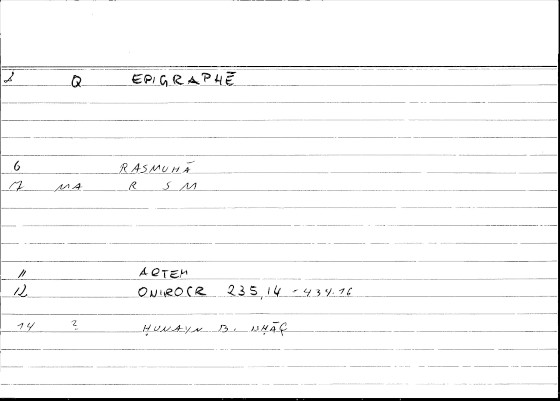 2 Q EPIGRAPHĒ
6 RASMUHĀ
17 MA R S M
11 ARTEM
12 ONIROCR 235,14 - 434.16
14 ? ḤUNAYN B. ISḤĀQ